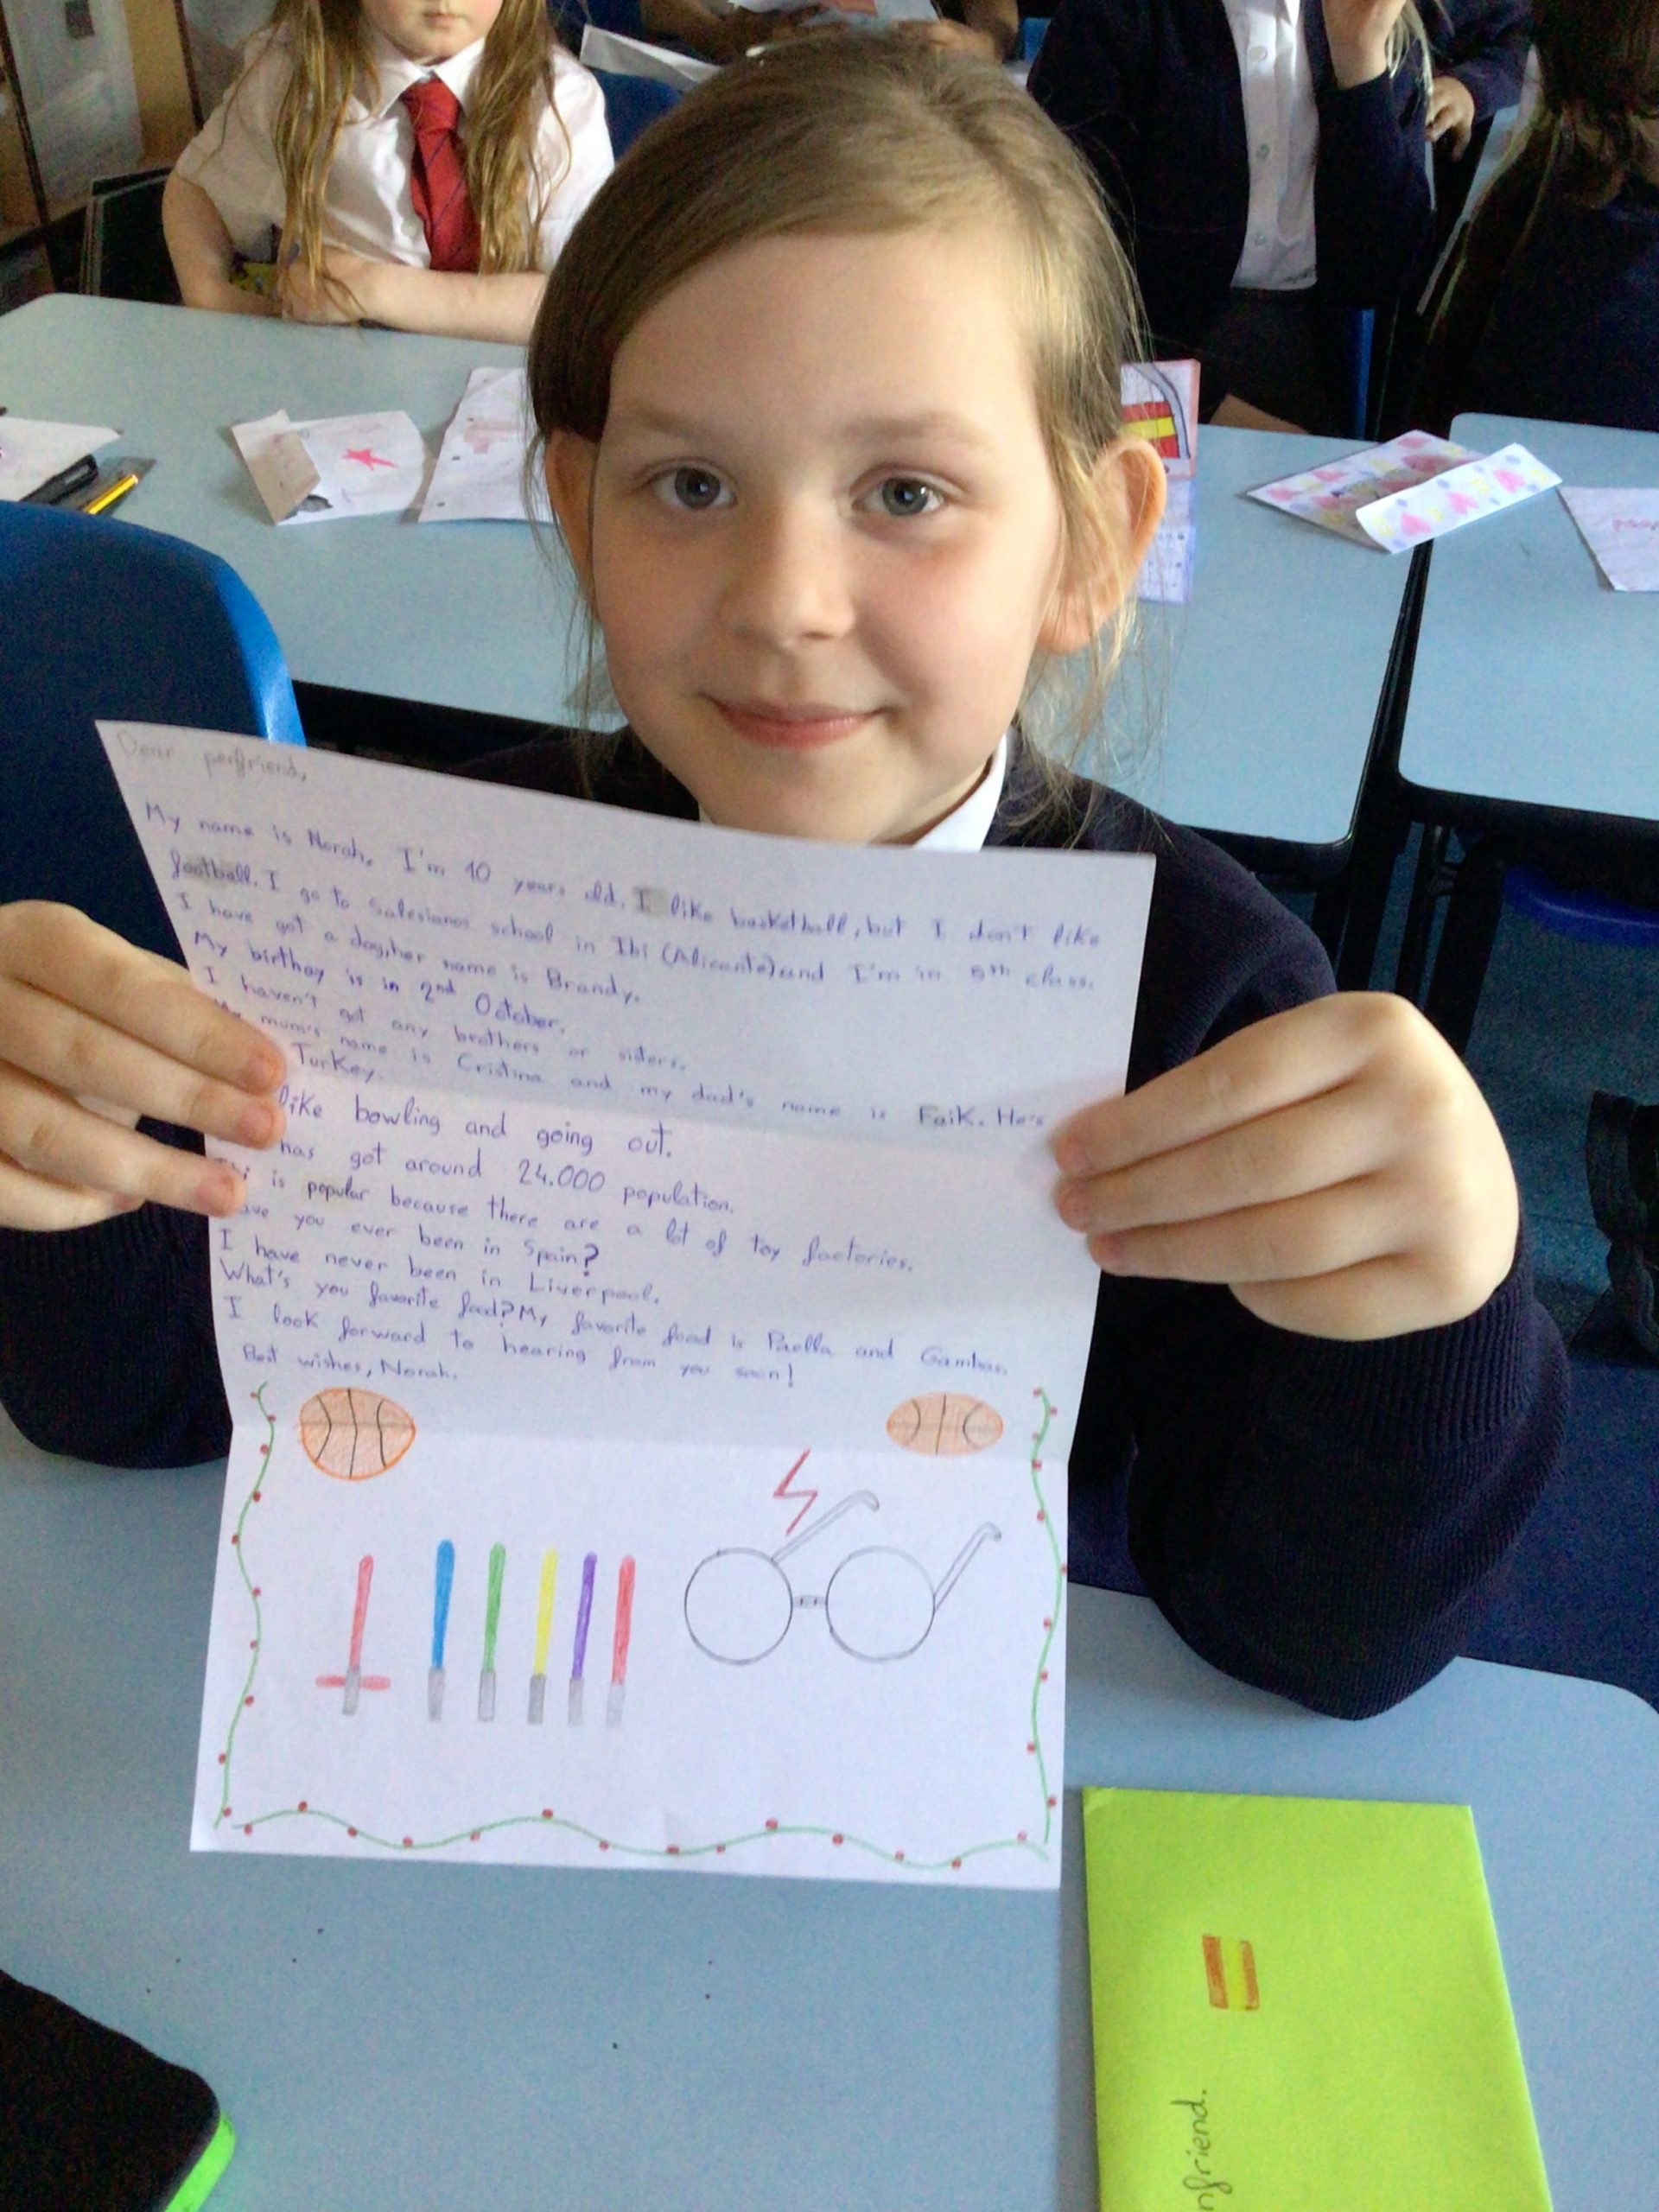 Dear penfriend,
My name is Norah. I'm 10 years old. I like basketball, but I don't like
football. I go to Salesianos school in Ibi (Alicante) and I'm in 5th class.
I have got a dog, her name is Brandy.
My birthay is in 2nd October.
I haven't got any brothers or sisters.
mum's name is Cristina and my dad's name is Faik. He's
Turkey.
like bowling and going out.
has got around 24.000 population.
is popular because there are a lot of toy factories.
you ever been in Spain?
I have never been in Liverpool.
What's you favorite food? My favorite food is Paella and Gambas.
I look forward to hearing from you soon!
Best wishes, Norah.
nfriend.